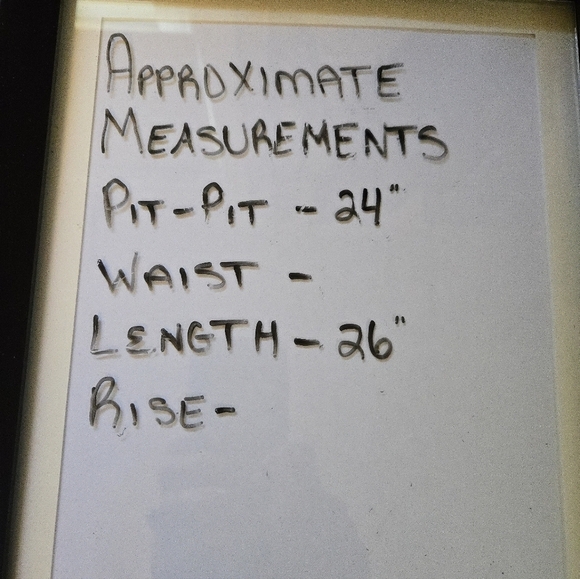 APPROXIMATE
MEASUREMENTS
PIT-PIT - 24"
WAIST -
LENGTH - 26"
RISE-